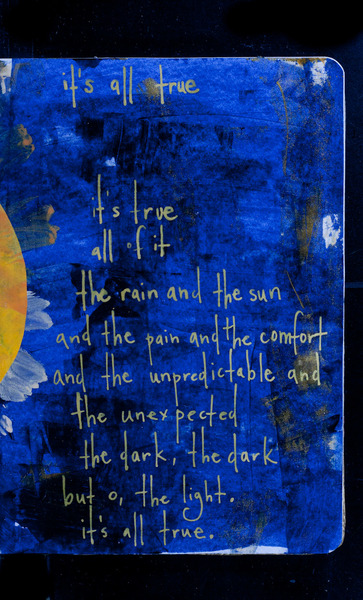 it's all true
it's true
all of it
the rain and the sun
and the pain and the comfort
and the unpredictable and
the unexpected
the dark, the dark
but o, the light.
it's all true.